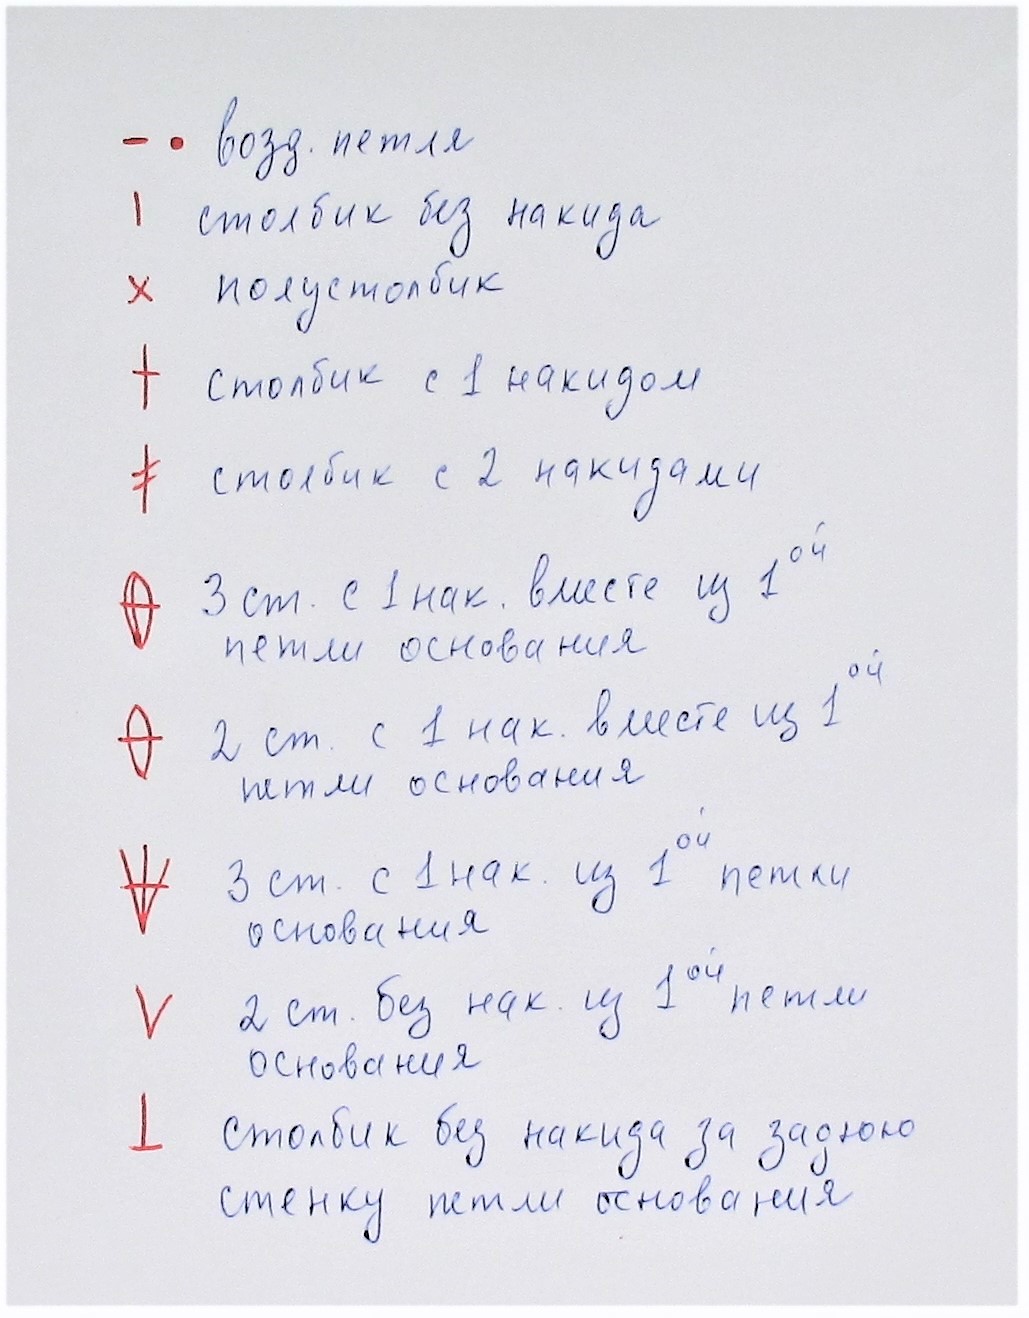 - • возд. петля
| столбик без накида
x полустолбик
† столбик с 1 накидом
столбик с 2 накидами
3 ст. с 1 нак. вместе из 1ой
петли основания
2 ст. с 1 нак. вместе из 1ой
петли основания
3 ст. с 1 нак. из 1ой петли
основания
V 2 ст. без нак. из 1ой петли
основания
⊥ столбик без накида за заднюю
стенку петли основания